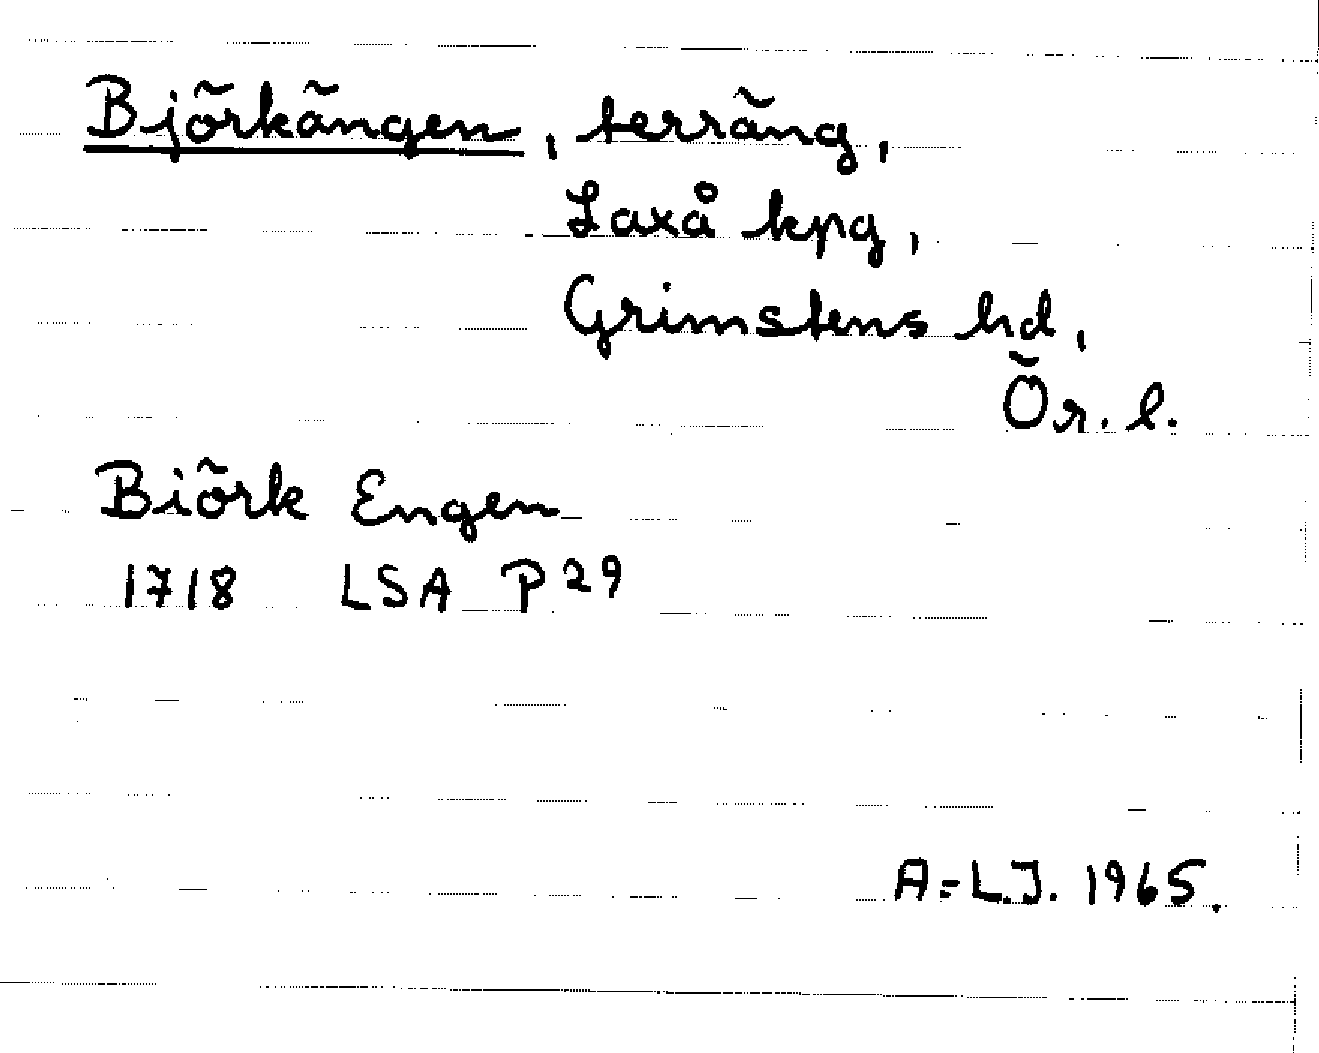 Björkängen, terräng,
Laxå kpg,
Grimstens hd,
Ör. l.
Biörk Engen
1718 LSA P 29
A-L.J. 1965.